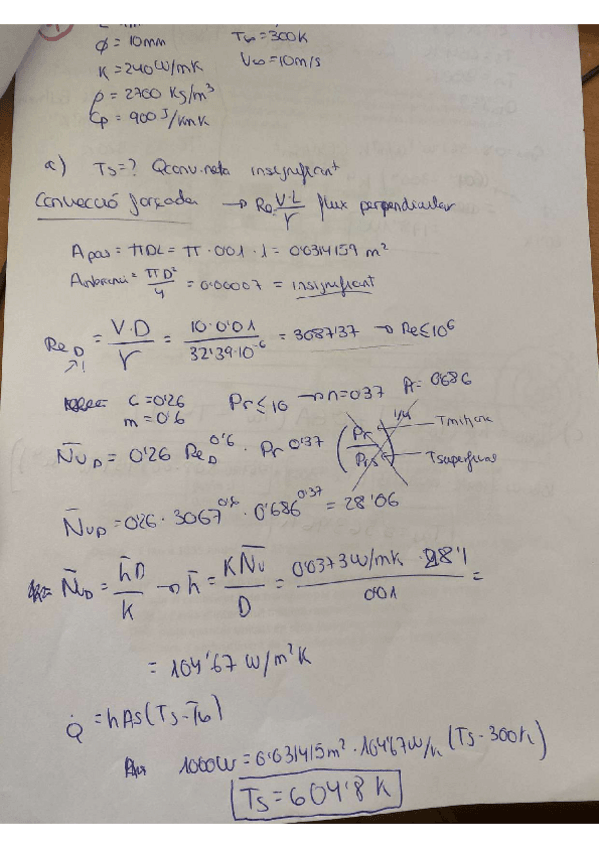 Φ = 10mm T∞ = 300K
K = 240 W/mK V∞ = 10m/s
ρ = 2700 Kg/m³
Cp = 900 J/KmK
a) Ts = ? Qconv. neta insignifant
Convecció forçada → Re = V·L/γ flux perpendicular
Apas = πDL = π · 0'01 · 1 = 0'0314159 m²
= πD²/4 = 0'00007 = insignificant
Re_D = V·D/γ = 10·0'01/32'39·10⁻⁶ = 3087'37 → Re ≤ 10⁶
C = 0'26 Pr ≤ 10 → n = 037 Pr = 0'686
m = 0'6
N̄u_D = 0'26 Re_D^0'6 · Pr^0'37 (Pr/Prs)^1/4
Tsuperficial
N̄u_D = 0'26 · 3067^0'6 · 0'686^0'37 = 28'06
N̄u_D = h̄D/K → h̄ = KN̄u/D = 0'0373 W/mK · 28'1/0'01 =
= 104'67 W/m²K
Q̇ = hAs(Ts - T∞)
1000W = 0'031415m² · 104'67W/ (Ts - 300K)
Ts = 604'8 K